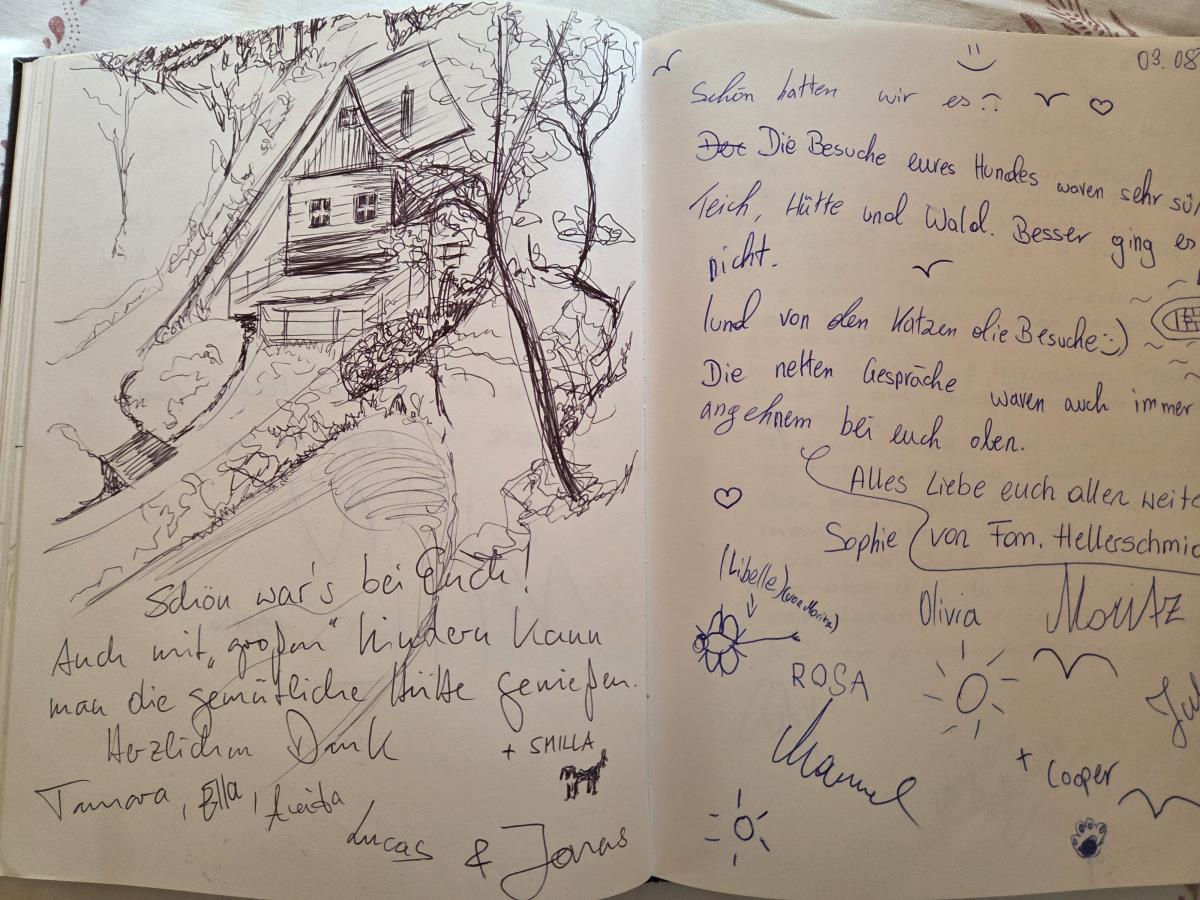 Schön war's bei Euch!
Auch mit „großen" Kindern kann
man die gemütliche Hütte genießen.
Herzlichen Dank
+ SMILLA
Tamara, Ella,
Lucas & Jonas
03.08
Schön hatten wir es
Die Besuche eures Hundes waren sehr sü
Teich, Hütte und Wald. Besser ging es
nicht.
(und von den Katzen die Besuche :))
Die netten Gespräche waren auch immer
angehnem bei euch oben.
Alles Liebe euch allen weite
Sophie von Fam. Hellerschmid
(Libelle) (von Moritz)
Olivia Moritz
ROSA
Jul
Manuel
+ Cooper